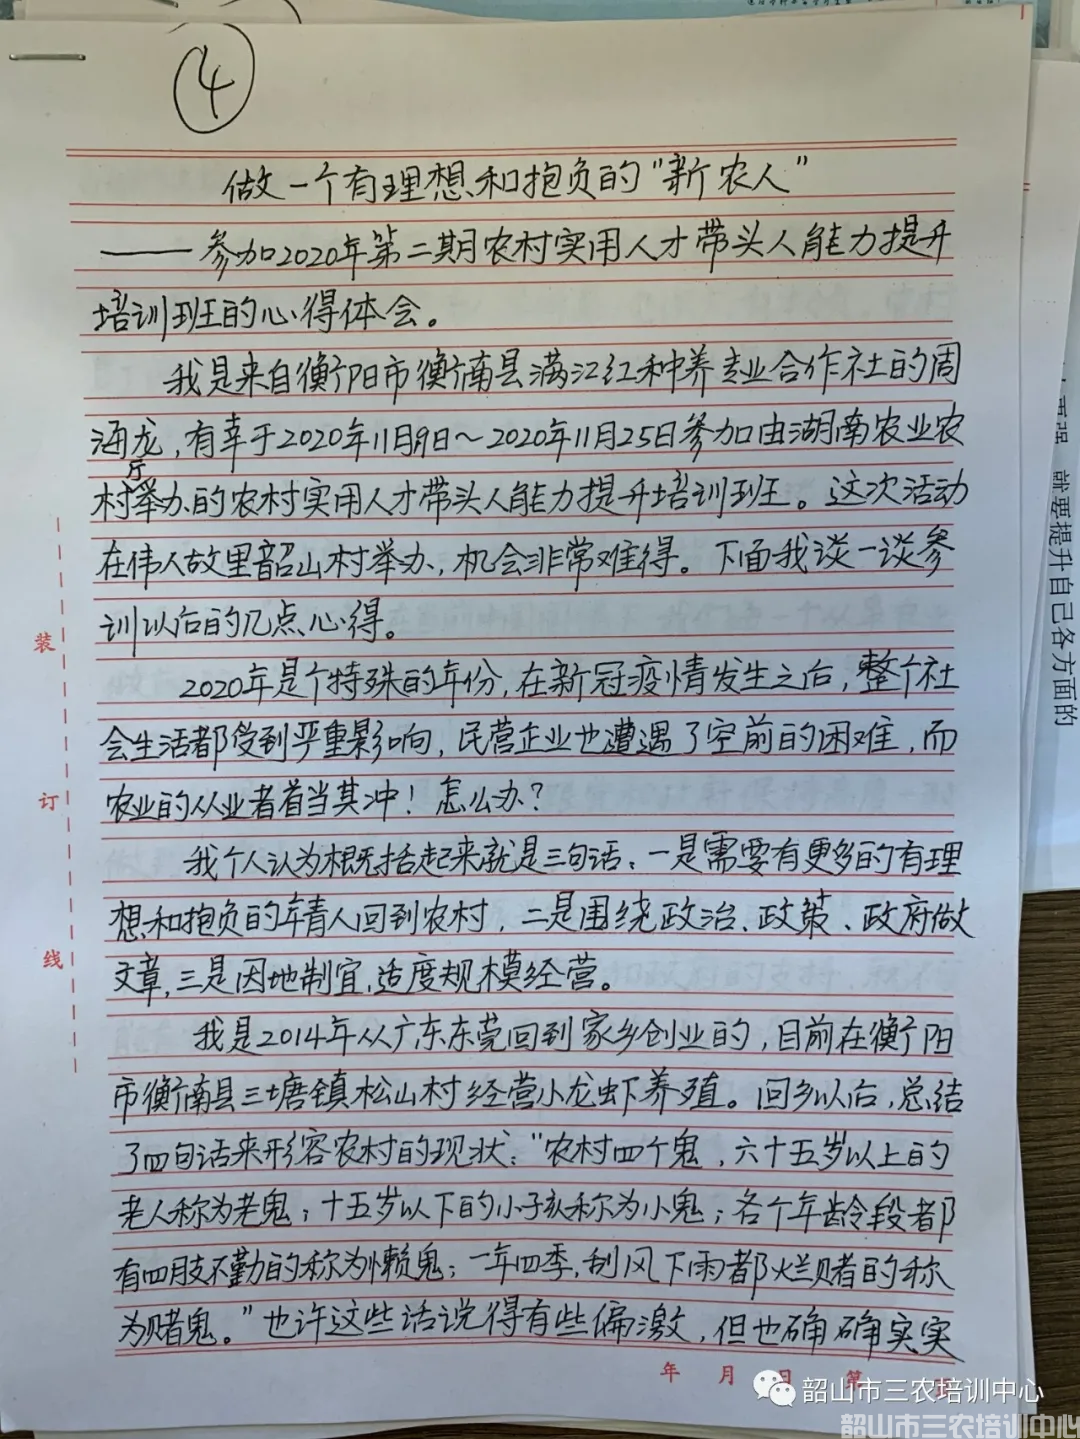 ④
做一个有理想和抱负的“新农人”
——参加2020年第二期农村实用人才带头人能力提升
培训班的心得体会。
我是来自衡阳市衡南县满江红种养专业合作社的周
海龙,有幸于2020年11月9日～2020年11月25日参加由湖南农业农
村厅举办的农村实用人才带头人能力提升培训班。这次活动
在伟人故里韶山村举办,机会非常难得。下面我谈一谈参
训以后的几点心得。
2020年是个特殊的年份,在新冠疫情发生之后,整个社
会生活都受到严重影响,民营企业也遭遇了空前的困难,而
农业的从业者首当其冲!怎么办?
我个人认为概括起来就是三句话:一是需要有更多的有理
想和抱负的年青人回到农村,二是围绕政治、政策、政府做
文章,三是因地制宜,适度规模经营。
我是2014年从广东东莞回到家乡创业的,目前在衡阳
市衡南县三塘镇松山村经营小龙虾养殖。回乡以后,总结
了四句话来形容农村的现状:“农村四个鬼,六十五岁以上的
老人称为老鬼;十五岁以下的小孩称为小鬼;各个年龄段者都
有四肢不勤的称为懒鬼;一年四季,刮风下雨都烂赌的称
为赌鬼。”也许这些话说得有些偏激,但也确确实实
装
订
线
年 月 日 第
就要提升自己各方面的
韶山市三农培训中心
韶山市三农培训中心